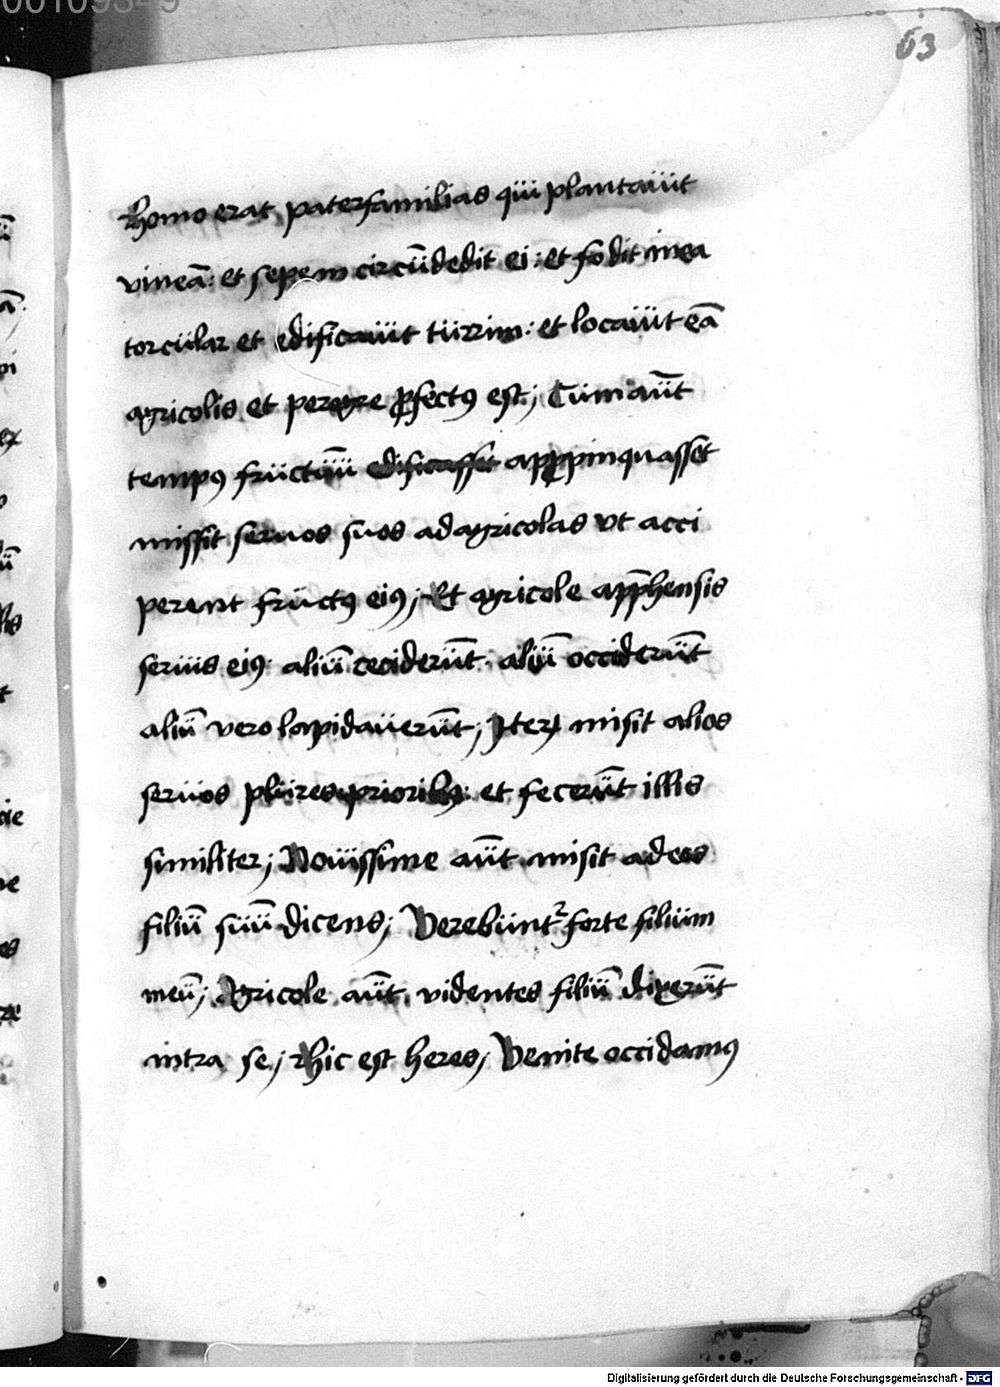 63
Homo erat paterfamilias qui plantauit
vineā: et sepem circūdedit ei: et fodit in ea
torcular et edificauit turrim: et locauit eā
agricolis et peregre ꝓfectꝰ est; Cum aūt
tempꝰ fructuū edificasset appꝓpinquasset
missit seruos suos ad agricolas vt acci
perent fructꝰ eiꝰ; Et agricole app̄hensis
seruis eiꝰ aliū ceciderūt. aliū occiderūt
aliū vero lapidauerūt; Iteꝝ misit alios
seruos plures prioribꝰ: et fecerūt illis
similiter; Nouissime aūt misit ad eos
filiū suū dicens; Verebunt᷑ forte filium
meū; Agricole aūt videntes filiū dixerūt
intra se; Hic est heres; Venite occidamꝰ
Digitalisierung gefördert durch die Deutsche Forschungsgemeinschaft - DFG